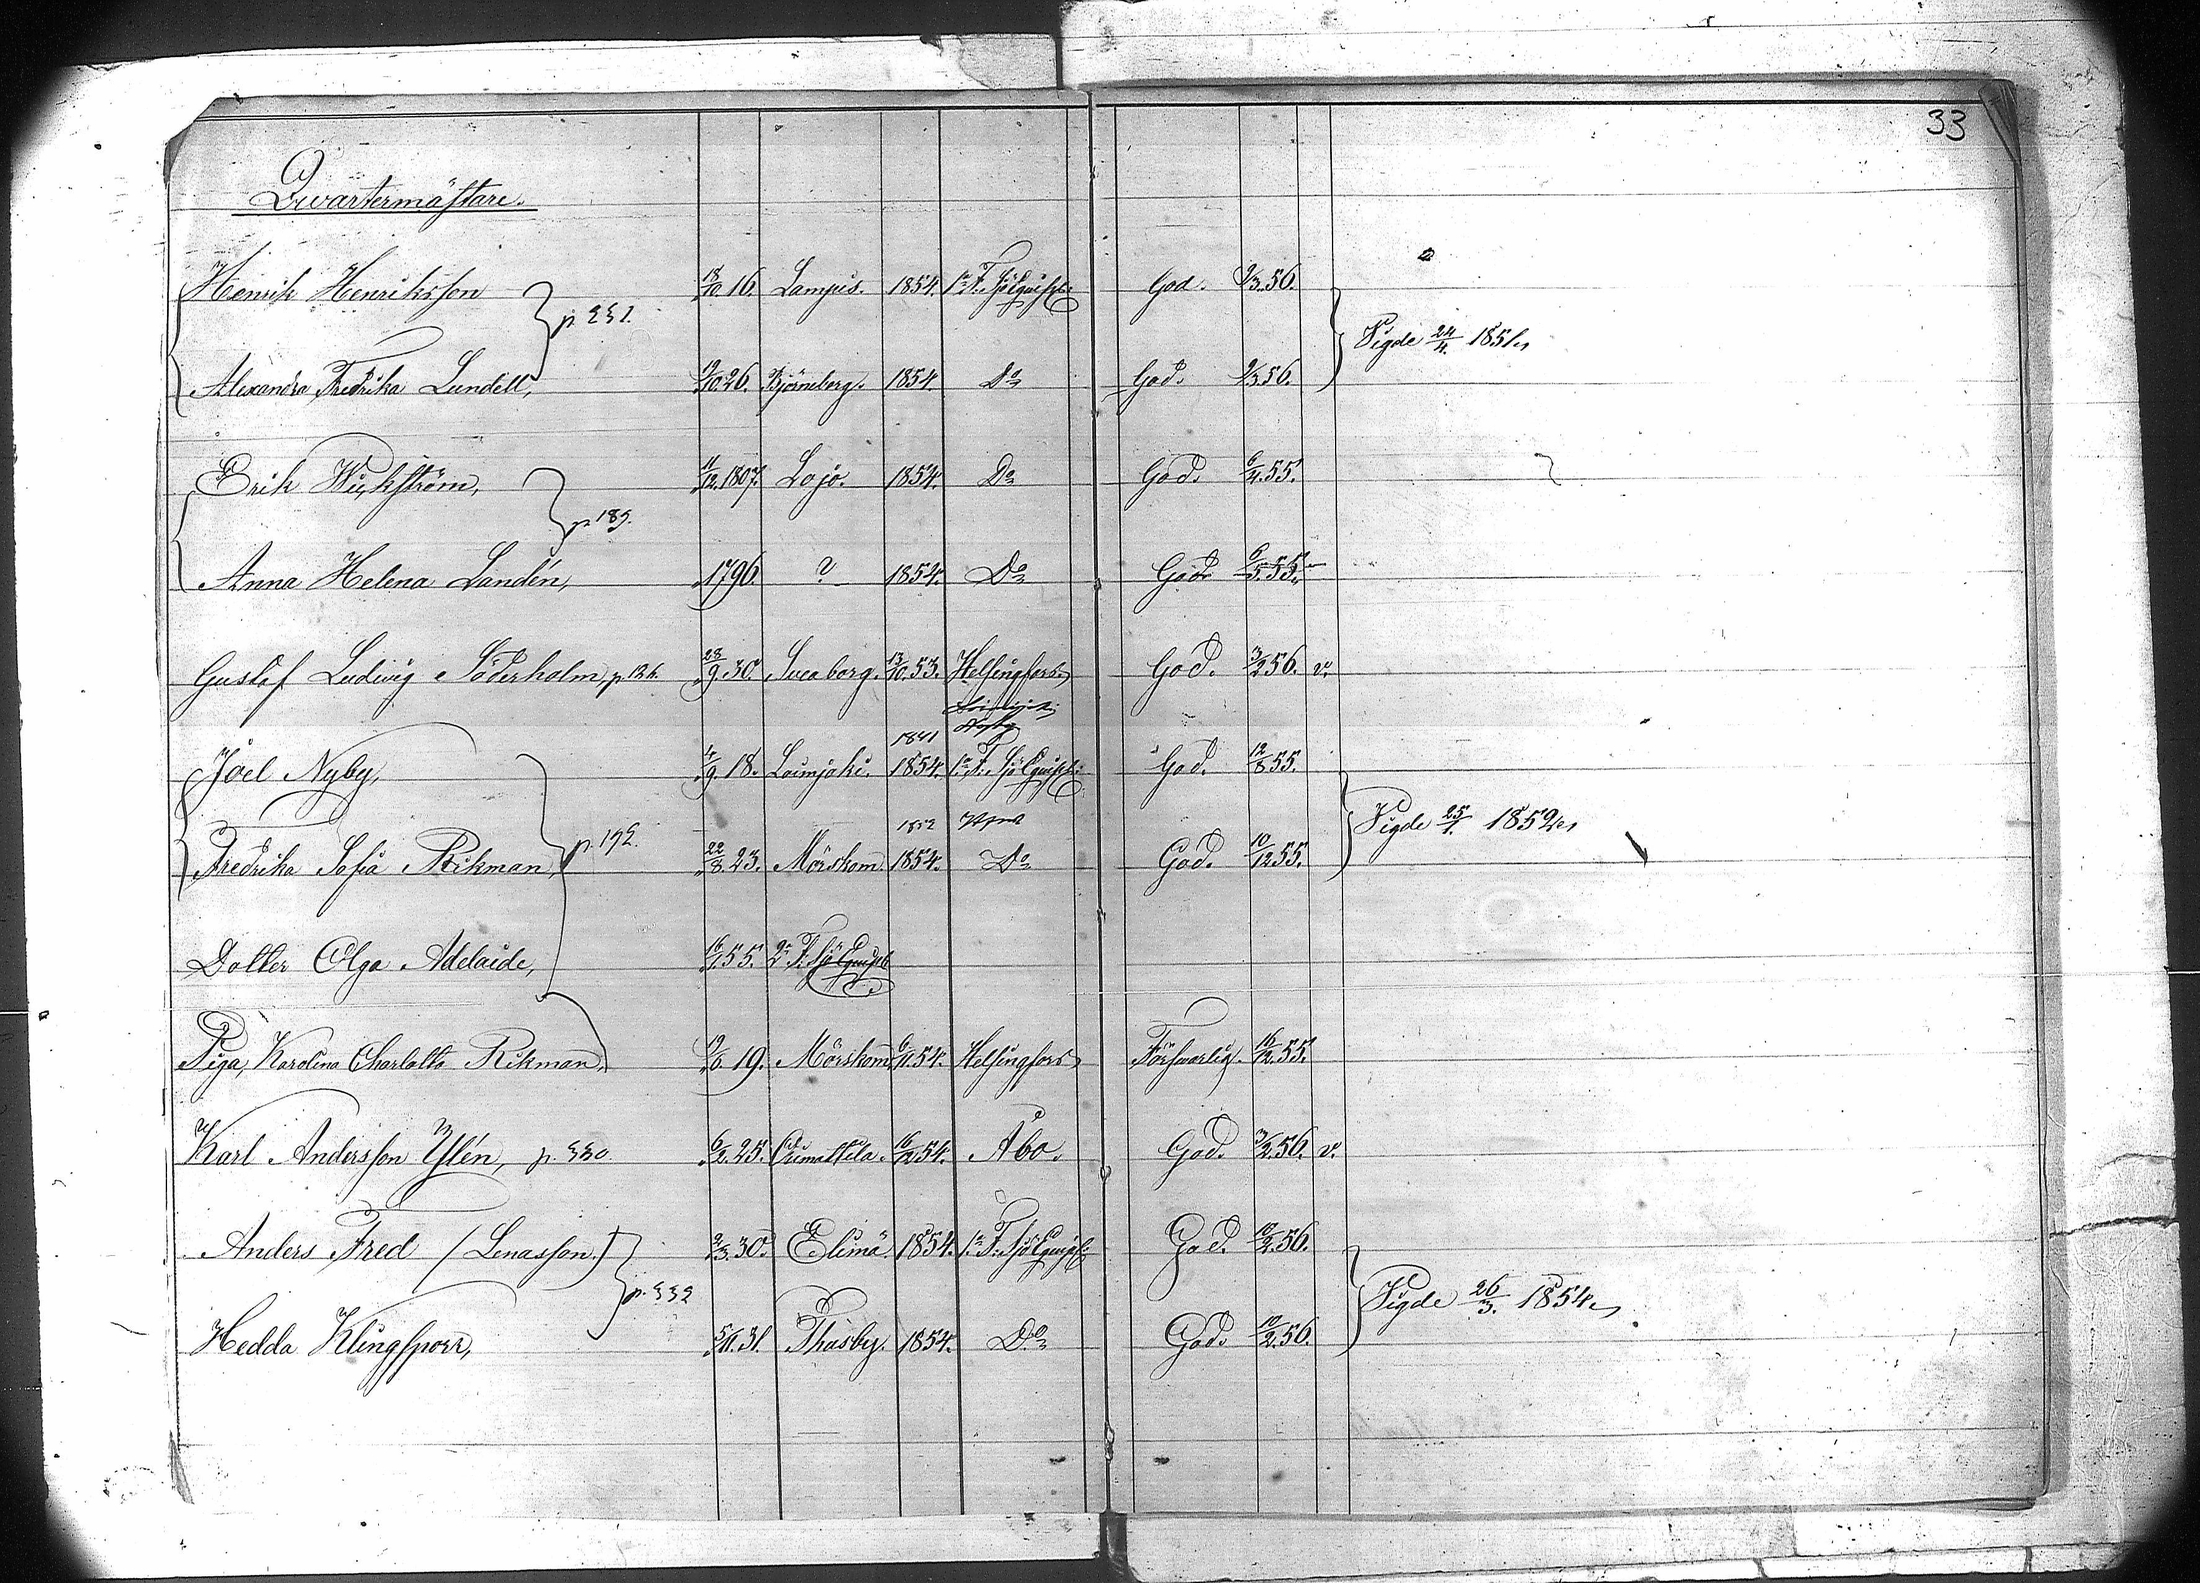 33
Qvartermästare.
Henrik Henriksson 18/10. 16. Lampis. 1854. 1a F. Sjö Equip. God. 9/3. 56.
p. 331. Vigde 24/4. 1851.
Alexandra Fredrika Lundell, 10. 26. Björneborg. 1854 Do God. 9/3 56.
Erik Wickström, 11/12. 1807. Lojo. 1854. Do God. 6/4. 55.
p. 189.
Anna Helena Landén, 1796 ? 1854. Do God 6/5. 55.
Gustaf Ludvig Söderholm, p. 126. 28/9. 30. Sveaborg. 13/10. 53. Helsingfors. God. 3/2 56. v.
1841
Joel Nyby, 4/9. 18. Loimjoki. 1854. 1a F. Sjö Equip. God. 12/8 55.
p. 192. 1852 Vigde 25/1. 1852.
Fredrika Sofia Rikman, 22/8. 23. Mörskom 1854. Do God. 10/12 55.
Dotter Olga Adelaide, 16/1 55. 2a F. Sjö Equip.
Piga, Karolina Charlotta Rikman, 19/6. 19. Mörskom 6/11. 54. Helsingfors Försvarlig. 16/12. 55.
Karl Andersson Ylén, p. 330 6/2. 25. Orimattila. 16/12 54. Åbo. God. 3/2. 56. v.
Anders Fred (Lenasson.) 2/3. 30. Elimä. 1854. 1a F. Sjö Equip. God. 10/2. 56.
p. 332 Vigde 26/3. 1854.
Hedda Klingsporr, 5/11. 31. Thusby. 1854. Do God. 10/2. 56.